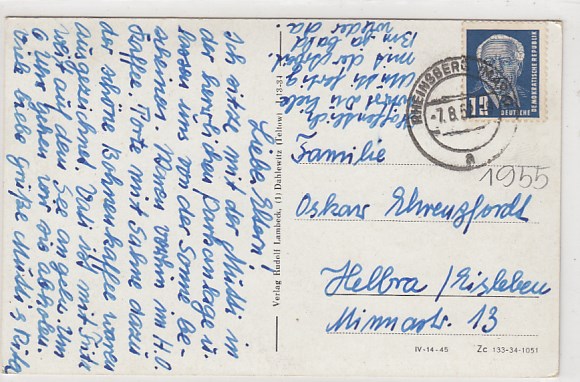 Liebe Eltern!
Ich sitze mit der Mutti in
der herrlichen Parkanlage u.
lassen uns von der Sonne be-
scheinen. Waren vorhin im H.O.
Kaffee. Torte mit Sahne dazu
der schöne Bohnenkaffee waren
ausgezeichnet. Vati ist mit Fritz
weit auf den See angeln. Um
6 Uhr gehen wir sie abholen.
Viele liebe Grüße Mutti &
Hoffentlich
wirst Du liebe
Mutti fertig
mit der
Bin ja bald
wieder da
Verlag Rudolf Lambeck, (1) Dahlewitz (Teltow) J 13-34
RHEINSBERG
-7.8.5
a
DEUTSCHE DEMOKRATISCHE REPUBLIK
1955
Familie
Oskar Ehrenpfordt
Helbra/Eisleben
Minnastr. 13
IV-14-45 Zc 133-34-1051